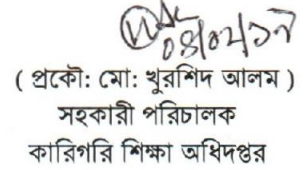 ০৪/০২/১৯
( প্রকৌ: মো: খুরশিদ আলম )
সহকারী পরিচালক
কারিগরি শিক্ষা অধিদপ্তর